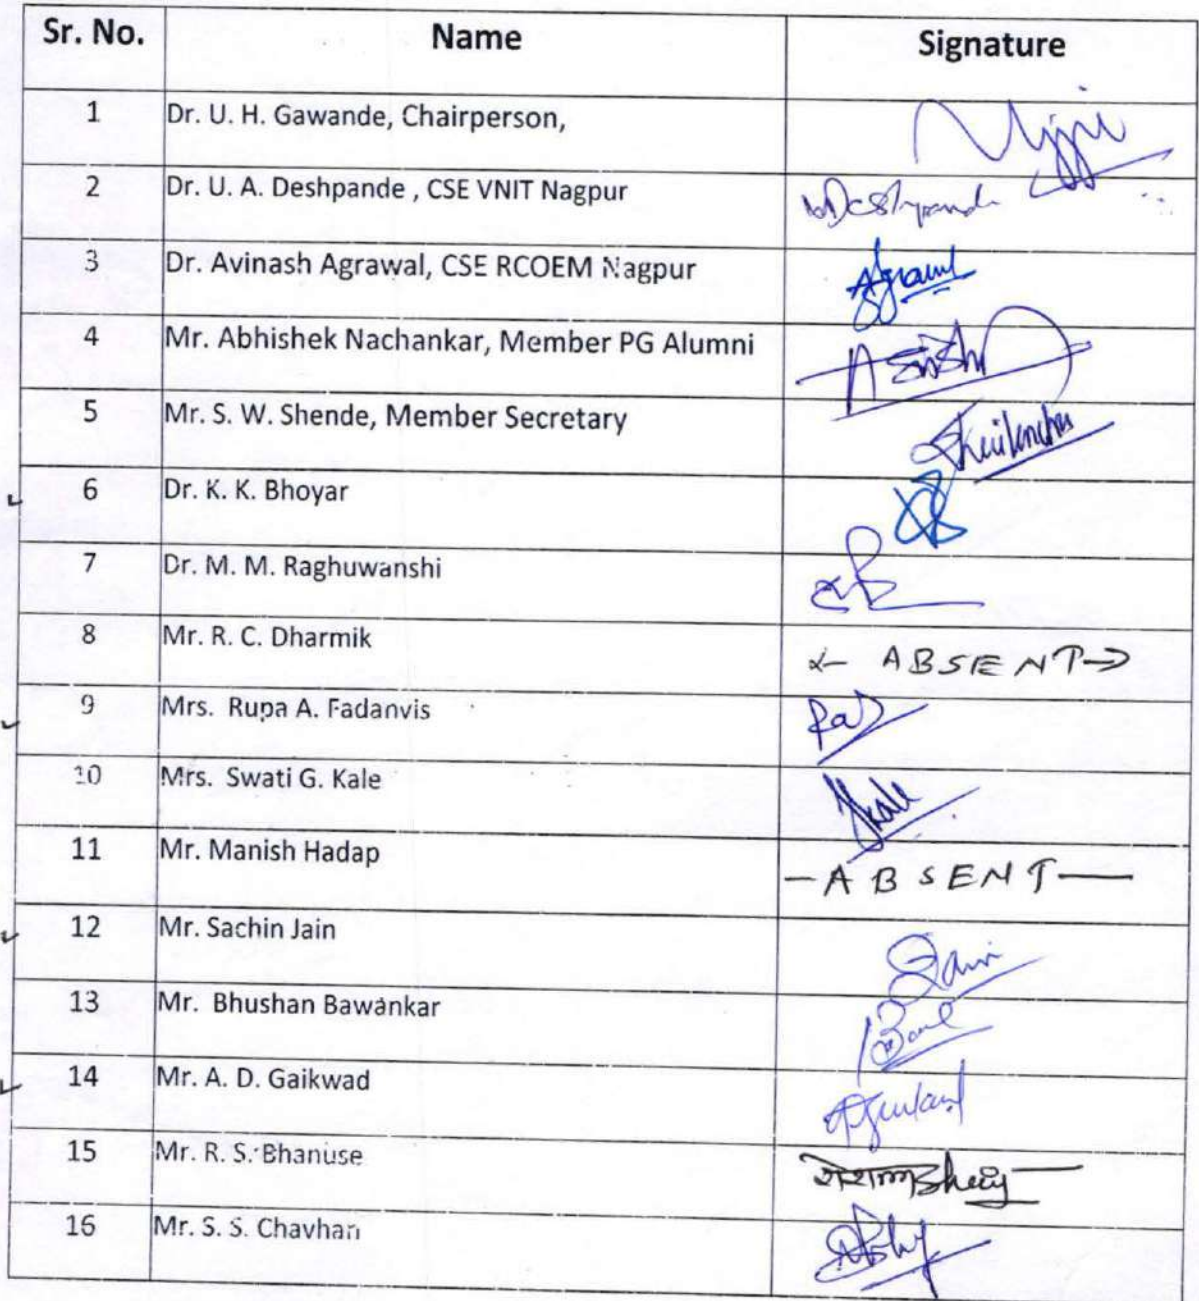 Sr. No. Name Signature
1 Dr. U. H. Gawande, Chairperson,
2 Dr. U. A. Deshpande , CSE VNIT Nagpur Deshpande
3 Dr. Avinash Agrawal, CSE RCOEM Nagpur
4 Mr. Abhishek Nachankar, Member PG Alumni
5 Mr. S. W. Shende, Member Secretary
6 Dr. K. K. Bhoyar
7 Dr. M. M. Raghuwanshi
8 Mr. R. C. Dharmik ABSENT
9 Mrs. Rupa A. Fadanvis
10 Mrs. Swati G. Kale
11 Mr. Manish Hadap ABSENT
12 Mr. Sachin Jain
13 Mr. Bhushan Bawankar
14 Mr. A. D. Gaikwad
15 Mr. R. S. Bhanuse
16 Mr. S. S. Chavhan